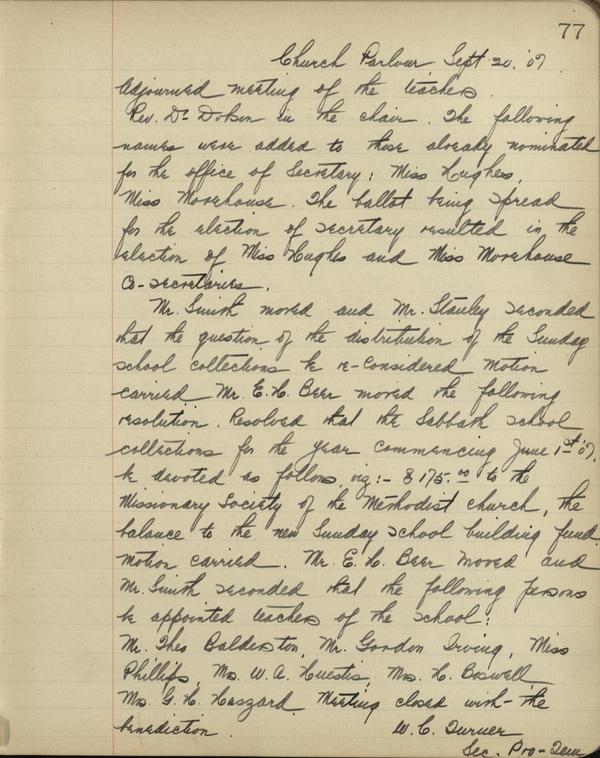 77
Church Parlour Sept 20. '07.
Adjourned meeting of the teachers.
Rev. Dr Dobson in the chair. The following
names were added to those already nominated
for the office of Secretary: Miss Hughes,
Miss Morehouse. The ballot being spread
for the election of secretary resulted in the
election of Miss Hughes and Miss Morehouse
Co-secretaries.
Mr. Smith moved and Mr. Stanley seconded
that the question of the distribution of the Sunday
school collections be re-considered Motion
carried Mr. E. H. Beer moved the following
resolution. Resolved that the Sabbath school
collections for the year commencing June 1st '07,
be devoted as follows, viz:- $175.00 to the
Missionary Society of the Methodist church, the
balance to the new Sunday school building fund.
Motion carried. Mr. E. H. Beer moved and
Mr. Smith seconded that the following persons
be appointed teachers of the school:
Mr. Theo Balderston, Mr. Gordon Irving, Miss
Phillips, Mrs. W. A. Huestis, Mrs. H. Boswell,
Mrs. G. H. Haszard. Meeting closed with the
benediction. W. C. Turner
Sec. Pro-Tem